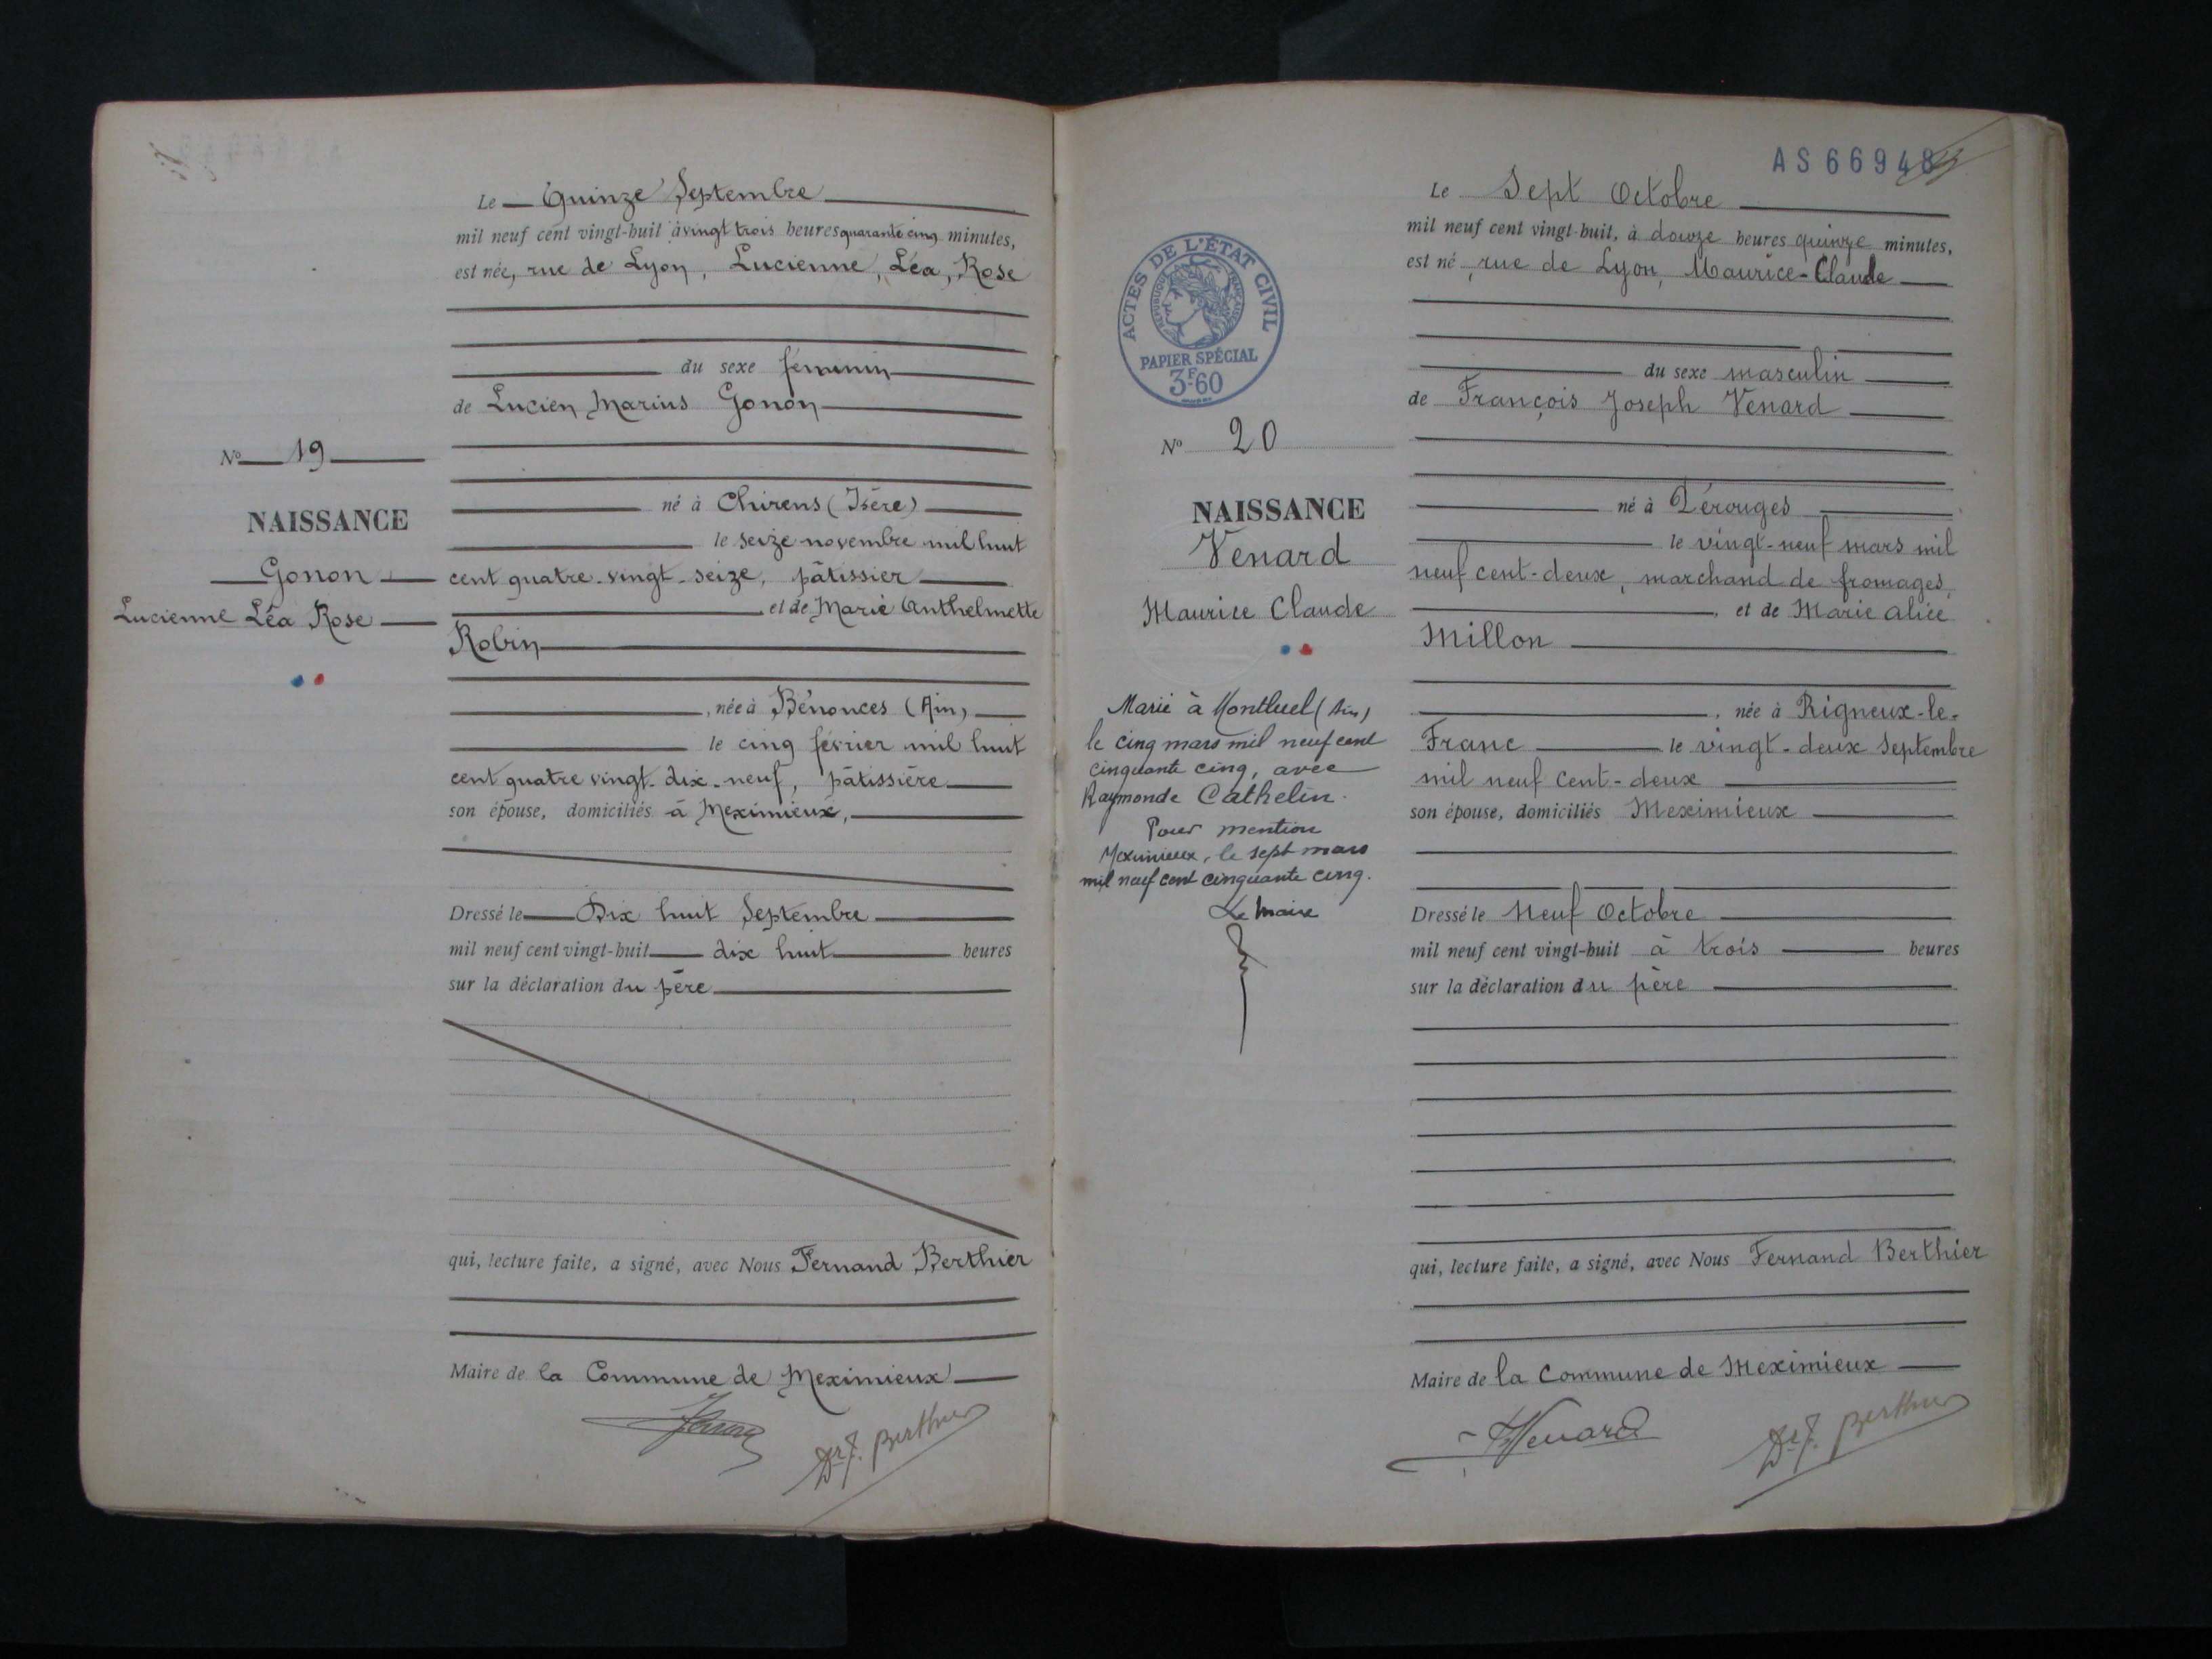 Le Quinze Septembre
mil neuf cent vingt-huit à vingt trois heures quarante cinq minutes,
est née, rue de Lyon, Lucienne, Léa, Rose
du sexe féminin
de Lucien Marius Gonon
né à Chirens (Isère)
le seize novembre mil huit
cent quatre-vingt-seize, pâtissier
et de Marie Anthelmette
Robin
, née à Bénonces (Ain)
le cinq février mil huit
cent quatre vingt-dix-neuf, pâtissière
son épouse, domiciliés à Meximieux,
Dressé le Dix huit Septembre
mil neuf cent vingt-huit dix huit heures
sur la déclaration du père
qui, lecture faite, a signé, avec Nous Fernand Berthier
Maire de la Commune de Meximieux
Dr F. Berthier
No 19
NAISSANCE
Gonon
Lucienne Léa Rose
AS 66948
ACTES DE L'ÉTAT CIVIL
RÉPUBLIQUE FRANÇAISE
PAPIER SPÉCIAL
3F60
No 20
NAISSANCE
Venard
Maurice Claude
Marié à Montluel (Ain)
le cinq mars mil neuf cent
cinquante cinq, avec
Raymonde Cathelin.
Pour mention
Meximieux, le sept mars
mil neuf cent cinquante cinq.
Le Maire
Le Sept Octobre
mil neuf cent vingt-huit, à douze heures quinze minutes,
est né, rue de Lyon, Maurice-Claude
du sexe masculin
de François Joseph Venard
né à Pérouges
le vingt-neuf mars mil
neuf cent-deux, marchand de fromages,
, et de Marie Alice
Millon
, née à Rigneux-le-
Franc le vingt-deux Septembre
mil neuf cent-deux
son épouse, domiciliés Meximieux
Dressé le Neuf Octobre
mil neuf cent vingt-huit à trois heures
sur la déclaration du père
qui, lecture faite, a signé, avec Nous Fernand Berthier
Maire de la Commune de Meximieux
Venard
Dr F. Berthier